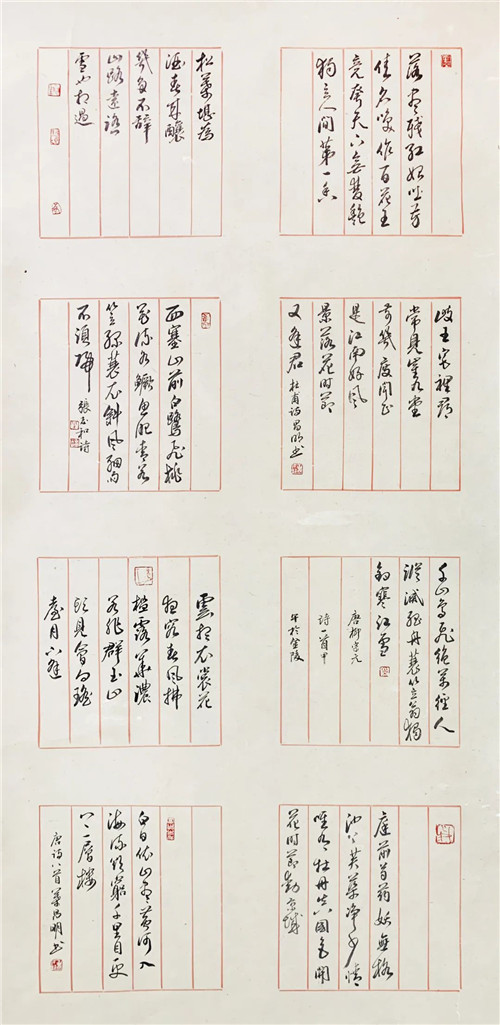 落尽殘红始吐芳
佳名唤作百花王
竞夸天下無雙艷
独立人间第一香
岐王宅裡尋
常見崔九堂
前幾度聞正
是江南好風
景落花時節
又逢君 杜甫诗 昌明书
千山鳥飛絶萬徑人
踪滅孤舟蓑笠翁獨
釣寒江雪
唐柳宗元
诗一首甲
午於金陵
庭前芍药妖無格
池上芙蕖净少情
唯有牡丹真國色開
花時節動京城
松葉堪為
酒春來釀
幾多不辭
山路遠踏
雪也相過
西塞山前白鷺飛桃
花流水鱖魚肥青箬
笠綠蓑衣斜風細雨
不須歸 張志和诗
雲想衣裳花
想容春風拂
檻露華濃
若非群玉山
頭見會向瑤
臺月下逢
白日依山盡黃河入
海流欲窮千里目更
上一層樓
唐诗八首 葉昌明书